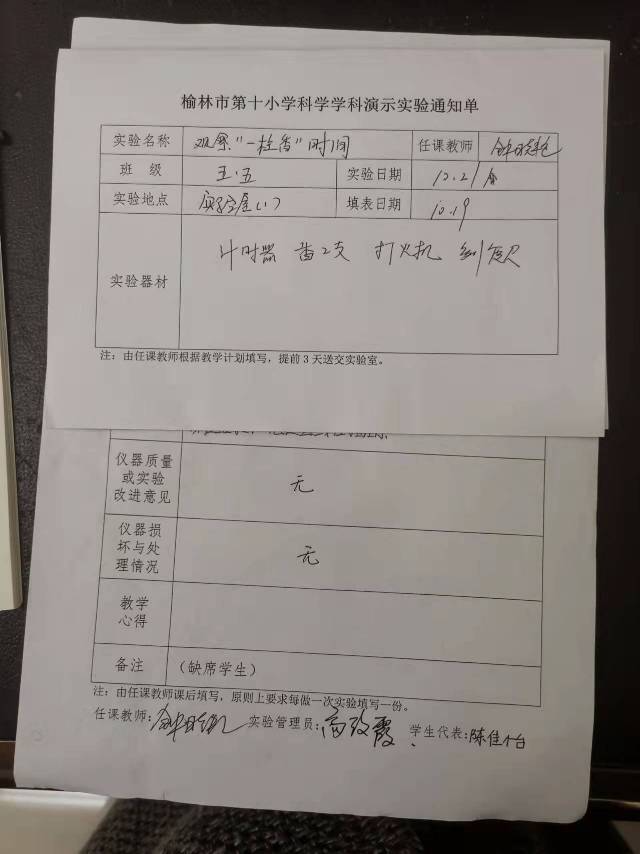 榆林市第十小学科学学科演示实验通知单
实验名称 观察"一柱香"时间 任课教师
班 级 五·五 实验日期 10.21
实验地点 实验室(1) 填表日期 10.19
实验器材 计时器 香2支 打火机 刻度尺
注：由任课教师根据教学计划填写，提前3天送交实验室。
仪器质量
或实验
改进意见 无
仪器损
坏与处
理情况 无
教学
心得
备注 （缺席学生）
注：由任课教师课后填写，原则上要求每做一次实验填写一份。
任课教师： 实验管理员：高改霞 学生代表：陈佳怡